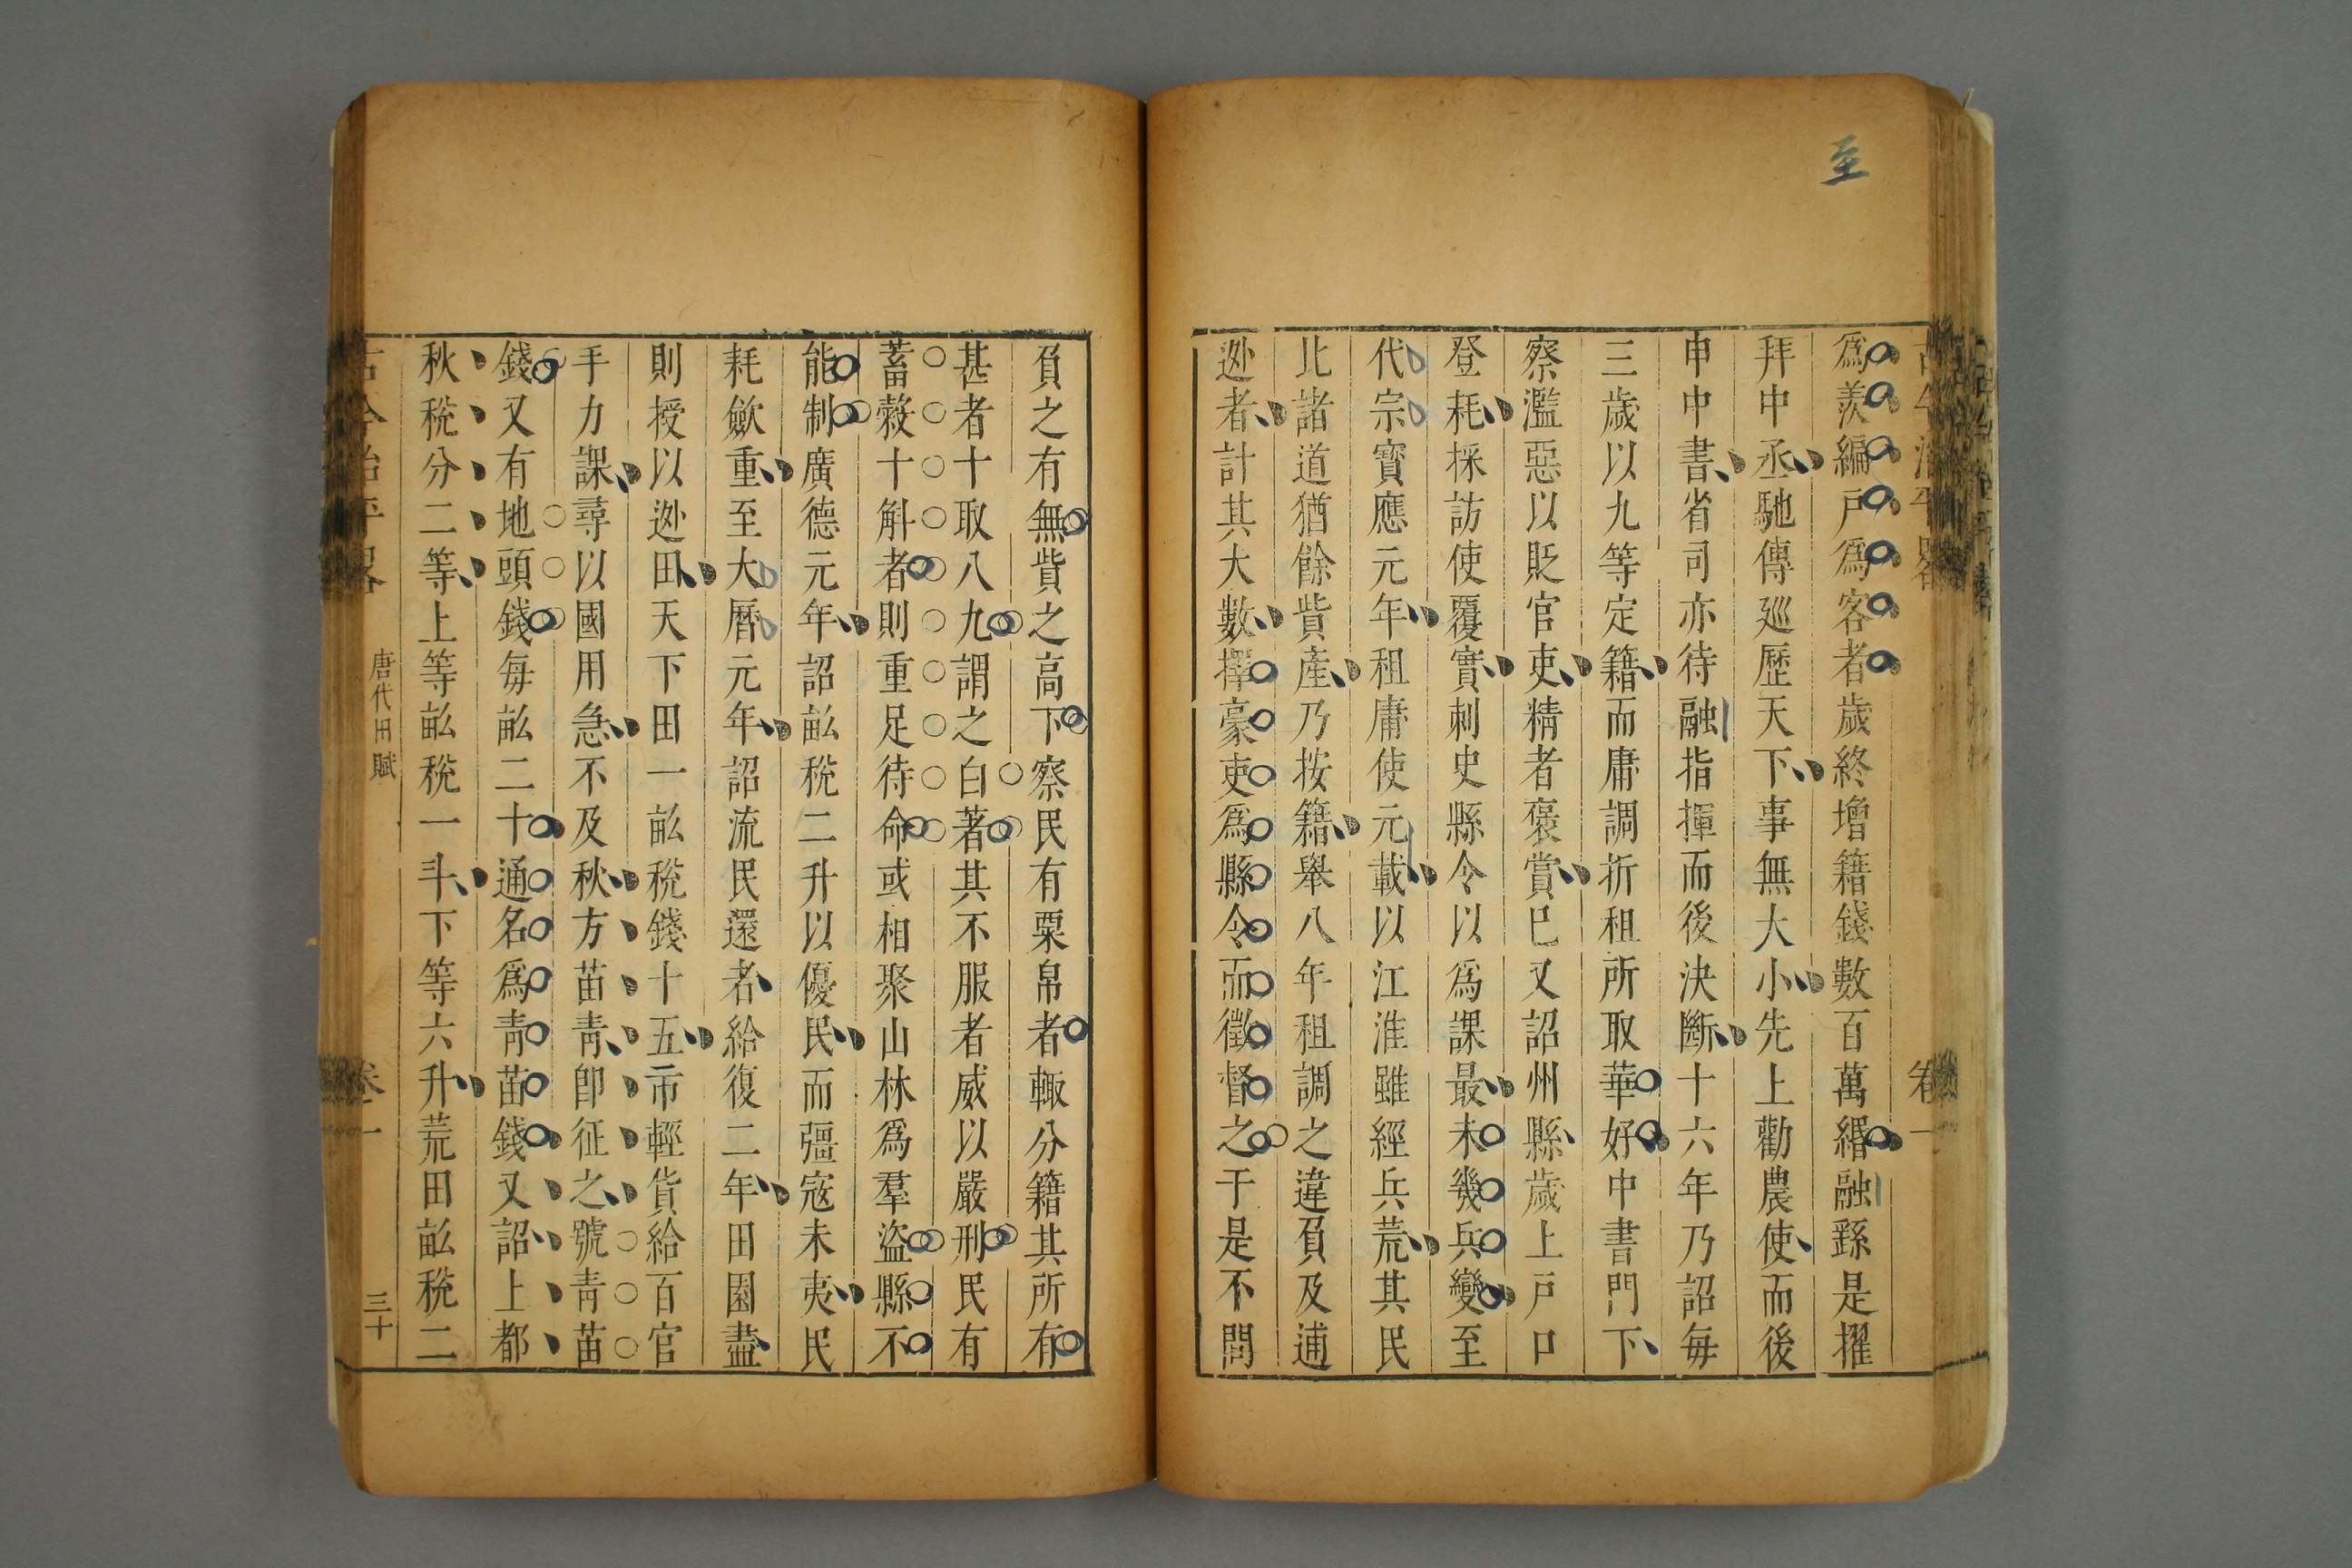 至
古今治平畧 卷一
爲羨編戶爲客者歲終增籍錢數百萬緡融繇是擢
拜中丞馳傳廵歷天下事無大小先上勸農使而後
申中書省司亦待融指揮而後決斷十六年乃詔毎
三歲以九等定籍而庸調折租所取華好中書門下
察濫惡以貶官吏精者褒賞巳又詔州縣歲上戸口
登耗採訪使覆實刺史縣令以爲課最未幾兵變至
代宗寶應元年租庸使元載以江淮雖經兵荒其民
比諸道猶餘貲產乃按籍舉八年租調之違負及逋
逊者計其大數擇豪吏爲縣令而徵督之于是不問
負之有無貲之高下察民有粟帛者輙分籍其所有
甚者十取八九謂之白著其不服者威以嚴刑民有
蓄榖十斛者則重足待命或相聚山林爲羣盜縣不
能制廣德元年詔畝稅二升以優民而彊寇未夷民
耗歛重至大曆元年詔流民還者給復二年田園盡
則授以逊田天下田一畝稅錢十五市輕貨給百官
手力課尋以國用急不及秋方苗靑卽征之號靑苗
錢又有地頭錢毎畝二十通名爲靑苗錢又詔上都
秋稅分二等上等畝稅一斗下等六升荒田畝稅二
古今治平畧 唐代田賦 卷一 三十